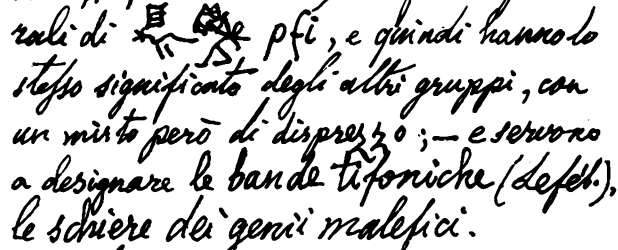 rali di e pfi, e quindi hanno lo
stesso significato degli altri gruppi, con
un misto però di disprezzo; — e servono
a designare le bande tifoniche (Leféb.),
le schiere dei genii malefici.